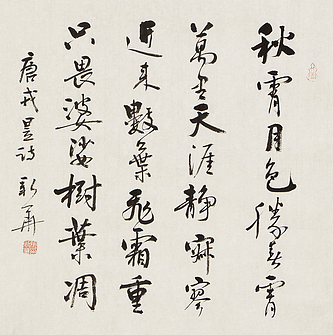 秋霄月色勝春霄
萬里天涯靜寂寥
近来數葉飛霜重
只畏婆娑樹葉凋
唐戎昱詩